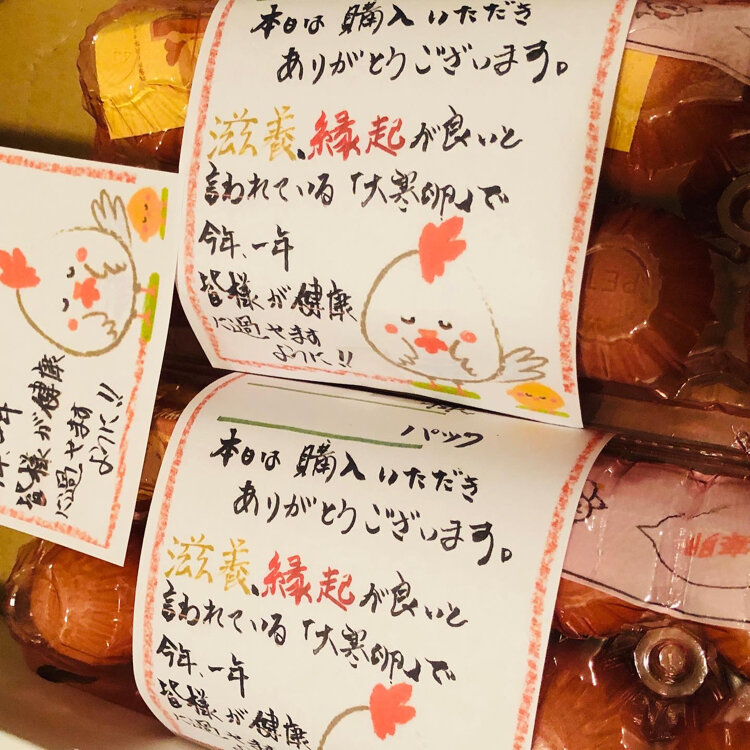 本日は購入いただき
ありがとうございます。
滋養、縁起が良いと
言われている「大寒卵」で
今年、一年
皆様が健康
に過せます
ように!!
皆様が健康
に過せます
ように!!
パック
本日は購入いただき
ありがとうございます。
滋養、縁起が良いと
言われている「大寒卵」で
今年、一年
皆様が健康
に過せます
PET